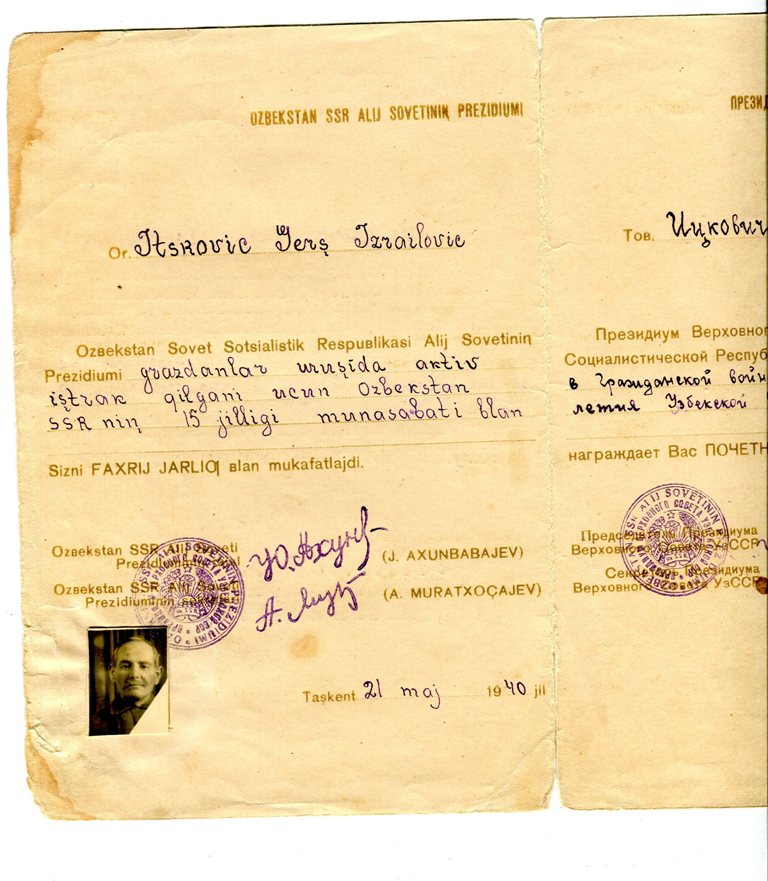 OZBEKSTAN SSR ALIJ SOVETININ̡ PREZIDIUMI
Or. Itskovic Gerş Izrailovic
Ozʙekstan Sovet Sotsialistik Respuʙlikasi Alij Sovetinin̡
Prezidiumi grazdanlar uruşida aktiv
iştrak qilgani ucun Ozbekstan
SSR nin̡ 15 jilligi munasabati blan
Sizni FAXRIJ JARLIQ ʙlan mukafatlajdi.
Ozʙekstan SSR Alij Soveti
(J. AXUNBABAJEV)
Ozʙekstan SSR Alij
Prezidiuminin̡
(A. MURATXOÇAJEV)
Taşkent 21 maj 1940 jil
ПРЕЗИД
Тов. Ицкович
Президиум Верховног
Социалистической Респуб
в гражданской войн
летия Узбекской
награждает Вас ПОЧЕТН
Председатель Президиума
Верховного Совета УзССР
Секретарь Президиума
Верховного Совета УзССР